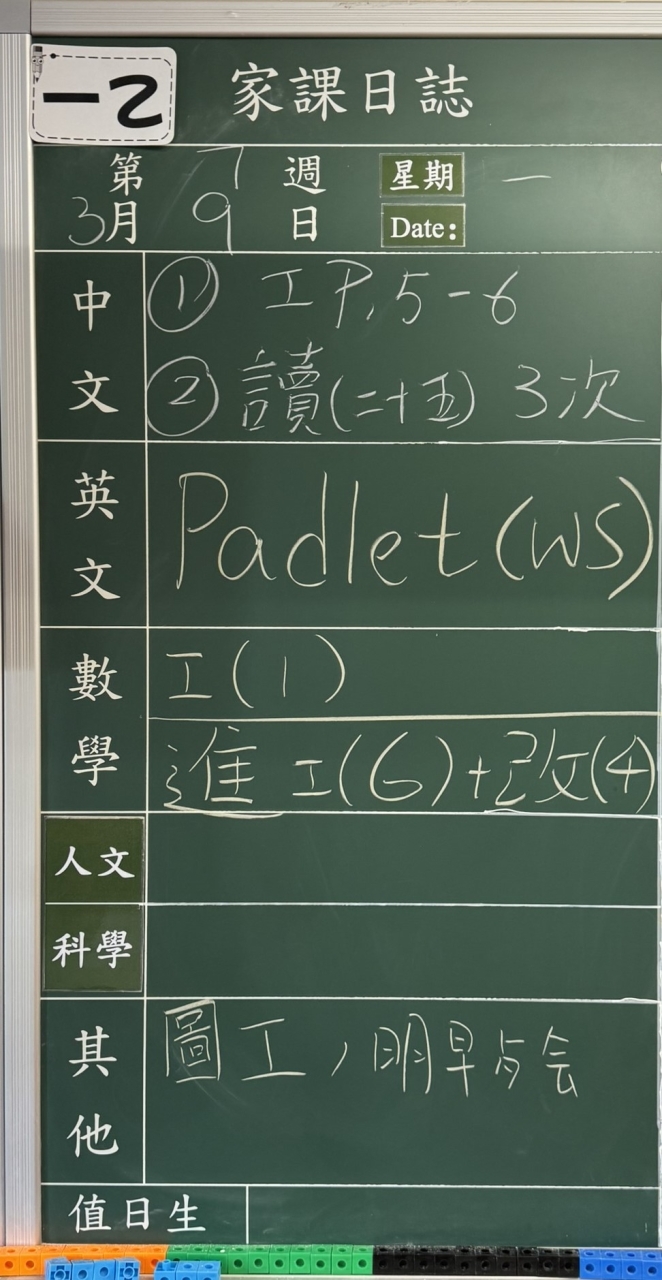 一2
家課日誌
第 7 週 星期 一
3月 9 日 Date:
中文
① 工 P.5-6
② 讀(二十五) 3次
英文
Padlet(WS)
數學
工(1)
進 工(6)+改(4)
人文
科學
其他
圖工,明早占会
值日生